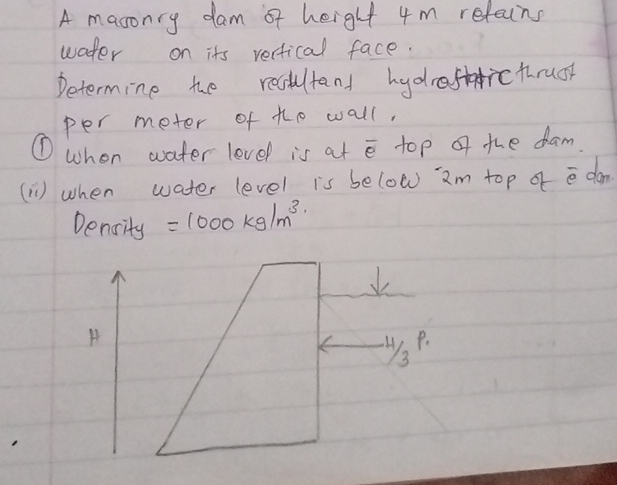 A masonry dam of height 4m retains
water on its vertical face.
Determine the resultant hydrostatic thrust
per meter of the wall.
(i) When water level is at ē top of the dam.
(ii) when water level is below 2m top of ē dam
Density = 1000 kg/m³.
H
H/3 P.